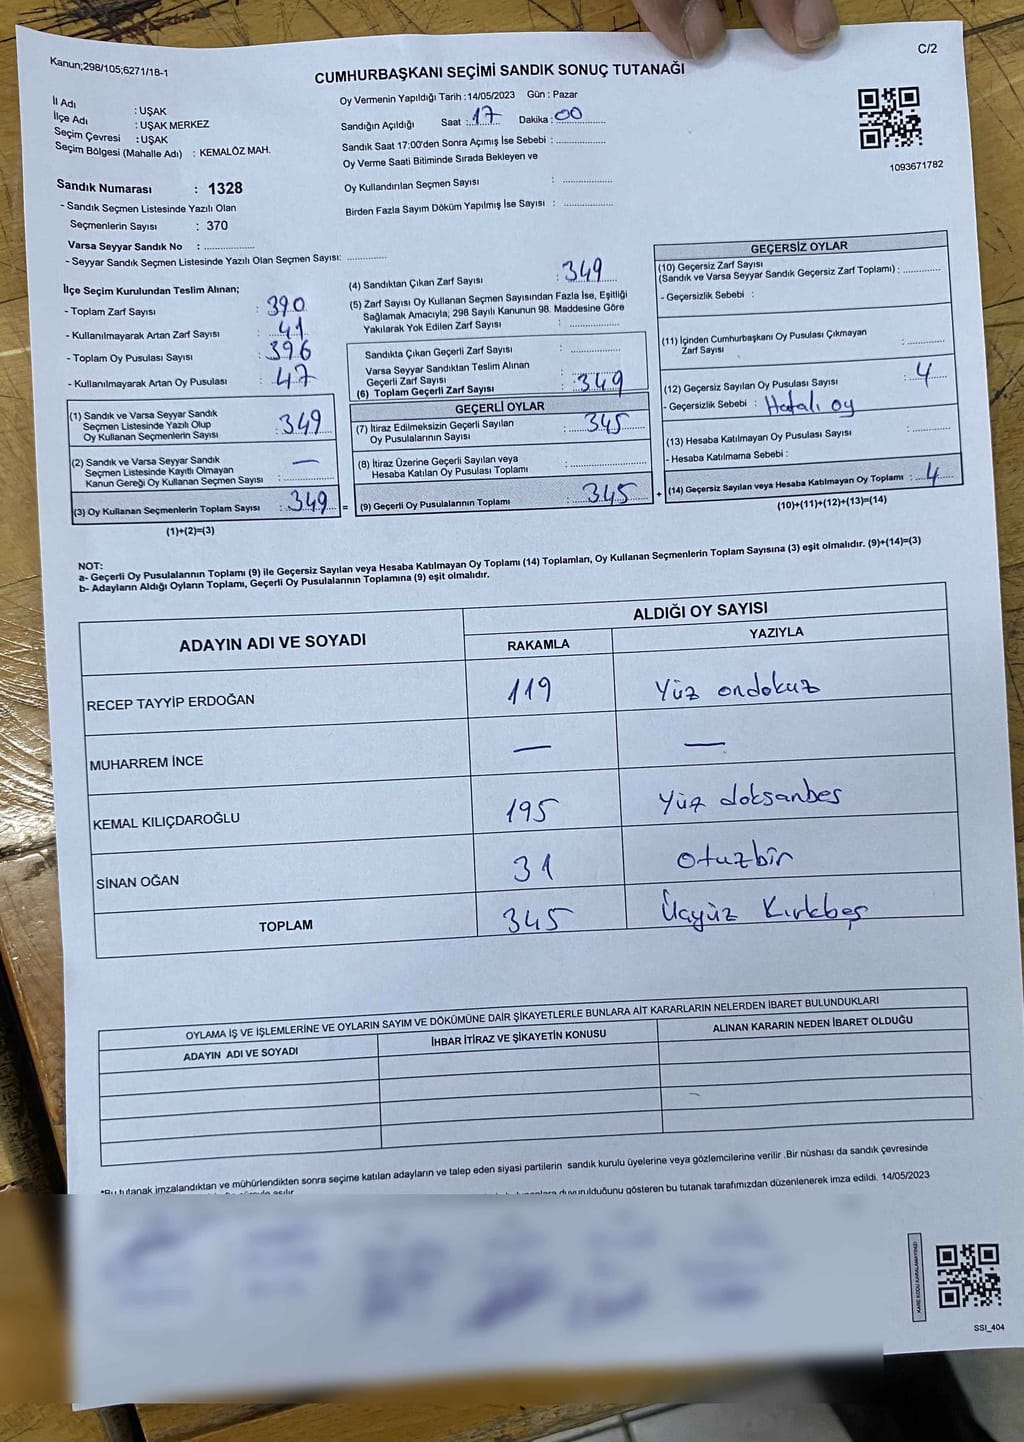 Kanun;298/105;6271/18-1
C/2
CUMHURBAŞKANI SEÇİMİ SANDIK SONUÇ TUTANAĞI
İl Adı : UŞAK
İlçe Adı : UŞAK MERKEZ
Seçim Çevresi : UŞAK
Seçim Bölgesi (Mahalle Adı) : KEMALÖZ MAH.
Oy Vermenin Yapıldığı Tarih :14/05/2023 Gün : Pazar
Sandığın Açıldığı Saat : 17 Dakika : 00
Sandık Saat 17:00'den Sonra Açımış İse Sebebi : ...............
Oy Verme Saati Bitiminde Sırada Bekleyen ve
Oy Kullandırılan Seçmen Sayısı : ...............
Birden Fazla Sayım Döküm Yapılmış İse Sayısı : ...............
1093671782
Sandık Numarası : 1328
- Sandık Seçmen Listesinde Yazılı Olan
Seçmenlerin Sayısı : 370
Varsa Seyyar Sandık No : ...............
- Seyyar Sandık Seçmen Listesinde Yazılı Olan Seçmen Sayısı: ............
İlçe Seçim Kurulundan Teslim Alınan;
- Toplam Zarf Sayısı : 390
- Kullanılmayarak Artan Zarf Sayısı : 41
- Toplam Oy Pusulası Sayısı : 396
- Kullanılmayarak Artan Oy Pusulası : 47
(1) Sandık ve Varsa Seyyar Sandık
Seçmen Listesinde Yazılı Olup
Oy Kullanan Seçmenlerin Sayısı : 349
(2) Sandık ve Varsa Seyyar Sandık
Seçmen Listesinde Kayıtlı Olmayan
Kanun Gereği Oy Kullanan Seçmen Sayısı : —
(3) Oy Kullanan Seçmenlerin Toplam Sayısı : 349 =
(1)+(2)=(3)
(4) Sandıktan Çıkan Zarf Sayısı : 349
(5) Zarf Sayısı Oy Kullanan Seçmen Sayısından Fazla İse, Eşitliği
Sağlamak Amacıyla; 298 Sayılı Kanunun 98. Maddesine Göre
Yakılarak Yok Edilen Zarf Sayısı : ...............
Sandıkta Çıkan Geçerli Zarf Sayısı : ...............
Varsa Seyyar Sandıktan Teslim Alınan
Geçerli Zarf Sayısı : ...............
(6) Toplam Geçerli Zarf Sayısı : 349
GEÇERLİ OYLAR
(7) İtiraz Edilmeksizin Geçerli Sayılan
Oy Pusulalarının Sayısı : 345
(8) İtiraz Üzerine Geçerli Sayılan veya
Hesaba Katılan Oy Pusulası Toplamı : ...............
(9) Geçerli Oy Pusulalarının Toplamı : 345 +
GEÇERSİZ OYLAR
(10) Geçersiz Zarf Sayısı
(Sandık ve Varsa Seyyar Sandık Geçersiz Zarf Toplamı) : ............
- Geçersizlik Sebebi :
(11) İçinden Cumhurbaşkanı Oy Pusulası Çıkmayan
Zarf Sayısı : ............
(12) Geçersiz Sayılan Oy Pusulası Sayısı : 4
- Geçersizlik Sebebi : Hatalı oy
(13) Hesaba Katılmayan Oy Pusulası Sayısı : ............
- Hesaba Katılmama Sebebi :
(14) Geçersiz Sayılan veya Hesaba Katılmayan Oy Toplamı : 4
(10)+(11)+(12)+(13)=(14)
NOT:
a- Geçerli Oy Pusulalarının Toplamı (9) ile Geçersiz Sayılan veya Hesaba Katılmayan Oy Toplamı (14) Toplamları, Oy Kullanan Seçmenlerin Toplam Sayısına (3) eşit olmalıdır. (9)+(14)=(3)
b- Adayların Aldığı Oyların Toplamı, Geçerli Oy Pusulalarının Toplamına (9) eşit olmalıdır.
ADAYIN ADI VE SOYADI
ALDIĞI OY SAYISI
RAKAMLA YAZIYLA
RECEP TAYYİP ERDOĞAN 119 Yüz ondokuz
MUHARREM İNCE — —
KEMAL KILIÇDAROĞLU 195 Yüz doksanbeş
SİNAN OĞAN 31 Otuzbir
TOPLAM 345 Üçyüz Kırkbeş
OYLAMA İŞ VE İŞLEMLERİNE VE OYLARIN SAYIM VE DÖKÜMÜNE DAİR ŞİKAYETLERLE BUNLARA AİT KARARLARIN NELERDEN İBARET BULUNDUKLARI
ADAYIN ADI VE SOYADI İHBAR İTİRAZ VE ŞİKAYETİN KONUSU ALINAN KARARIN NEDEN İBARET OLDUĞU
*Bu tutanak imzalandıktan ve mühürlendikten sonra seçime katılan adayların ve talep eden siyasi partilerin sandık kurulu üyelerine veya gözlemcilerine verilir .Bir nüshası da sandık çevresinde
duyurulduğunu gösteren bu tutanak tarafımızdan düzenlenerek imza edildi. 14/05/2023
KARE KODU KARALAMAYINIZ!
SSI_404